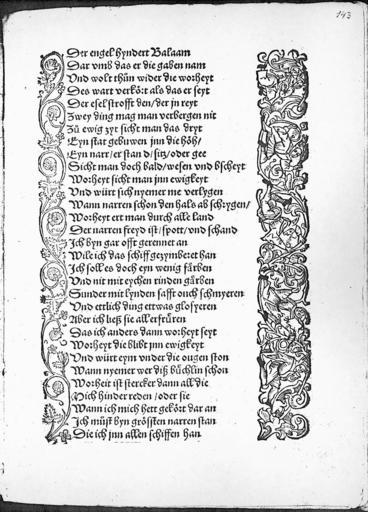 143
Der engel hyndert Balaam
Dar vmb das er die gaben nam
Vnd wolt thůn wider die worheyt
Des wart verkört als das er seyt
Der esel strofft den / der jn reyt
Zwey ding mag man verbergen nit
Zů ewig zyt sicht man das dryt
Eyn stat gebuwen jnn die höh /
Eyn narr / er stand / sitz / oder gee
Sicht man doch bald / wesen vnd bscheyt
Worheyt sicht man jnn ewigkeyt
Vnd würt sich nyemer me verlygen
Wann narren schon den hals ab schrygen /
Worheyt ert man durch alle land
Der narren freyd ist / spott / vnd schand
Jch byn gar offt gerennet an
Wile ich das schiff gezymberet han
Jch soll es doch eyn wenig färben
Vnd nit mit eychen rinden gärben
Sunder mit lynden safft ouch schmyeren
Vnd ettlich ding ettwas glosyeren
Aber ich ließ sie all erfrüren
Das ich anders dann worheyt seyt
Worheyt die blibt jnn ewigkeyt
Vnd würt eym vnder die ougen ston
Wann nyemer wer diß büchlin schon
Worheit ist stercker dann all die
Mich hinder reden / oder sie
Wann ich mich hett gekört dar an
Jch můst byn grössten narren stan
Die ich jnn allen schiffen han